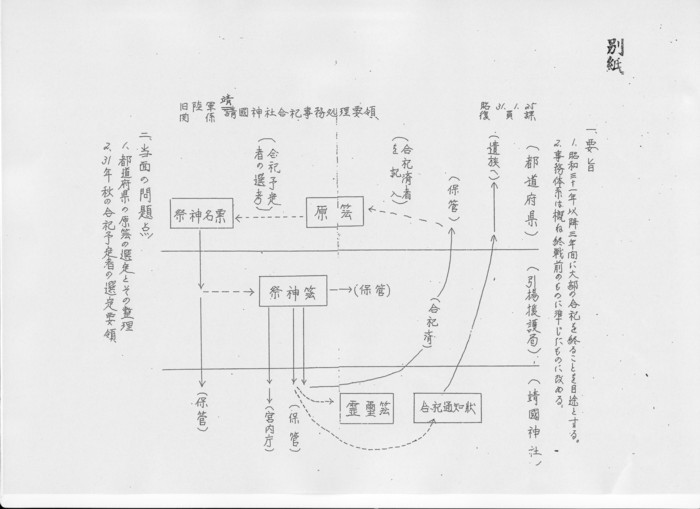 別紙
一要旨
1. 昭和三十一年以降三年間に大部の合祀を終ることを目途とする。
2. 事務体系は概ね終戦前のものに準じたものに改める。
31.1.25
復員課
旧陸軍関係
靖國神社合祀事務処理要領
(都道府県)
(引揚援護局)
(靖國神社)
(遺族へ)
(保管)
(合祀済者を記入)
原簿
(合祀予定者の選考)
祭神名票
祭神簿
(保管)
(合祀済)
合祀通知状
霊璽簿
(保管)
(宮内庁)
(保管)
二、当面の問題点
1. 都道府県の原簿の選定とその整理
2. 31年秋の合祀予定者の選定要領